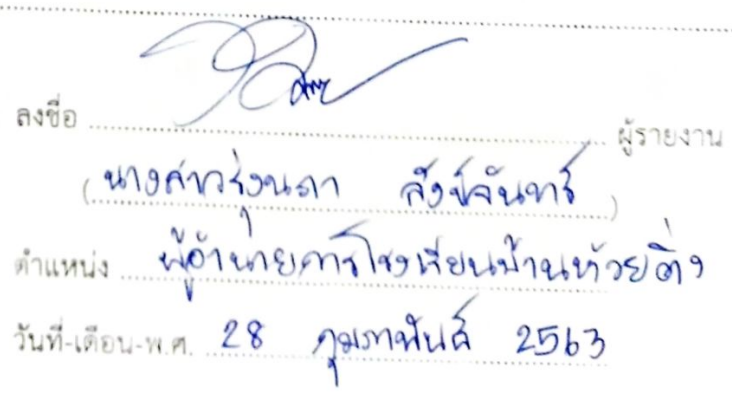 ลงชื่อ ผู้รายงาน
(นางสาวรุ่งนภา สังข์จันทร์)
ตำแหน่ง ผู้อำนวยการโรงเรียนบ้านห้วยติ่ง
วันที่-เดือน-พ.ศ. 28 กุมภาพันธ์ 2563